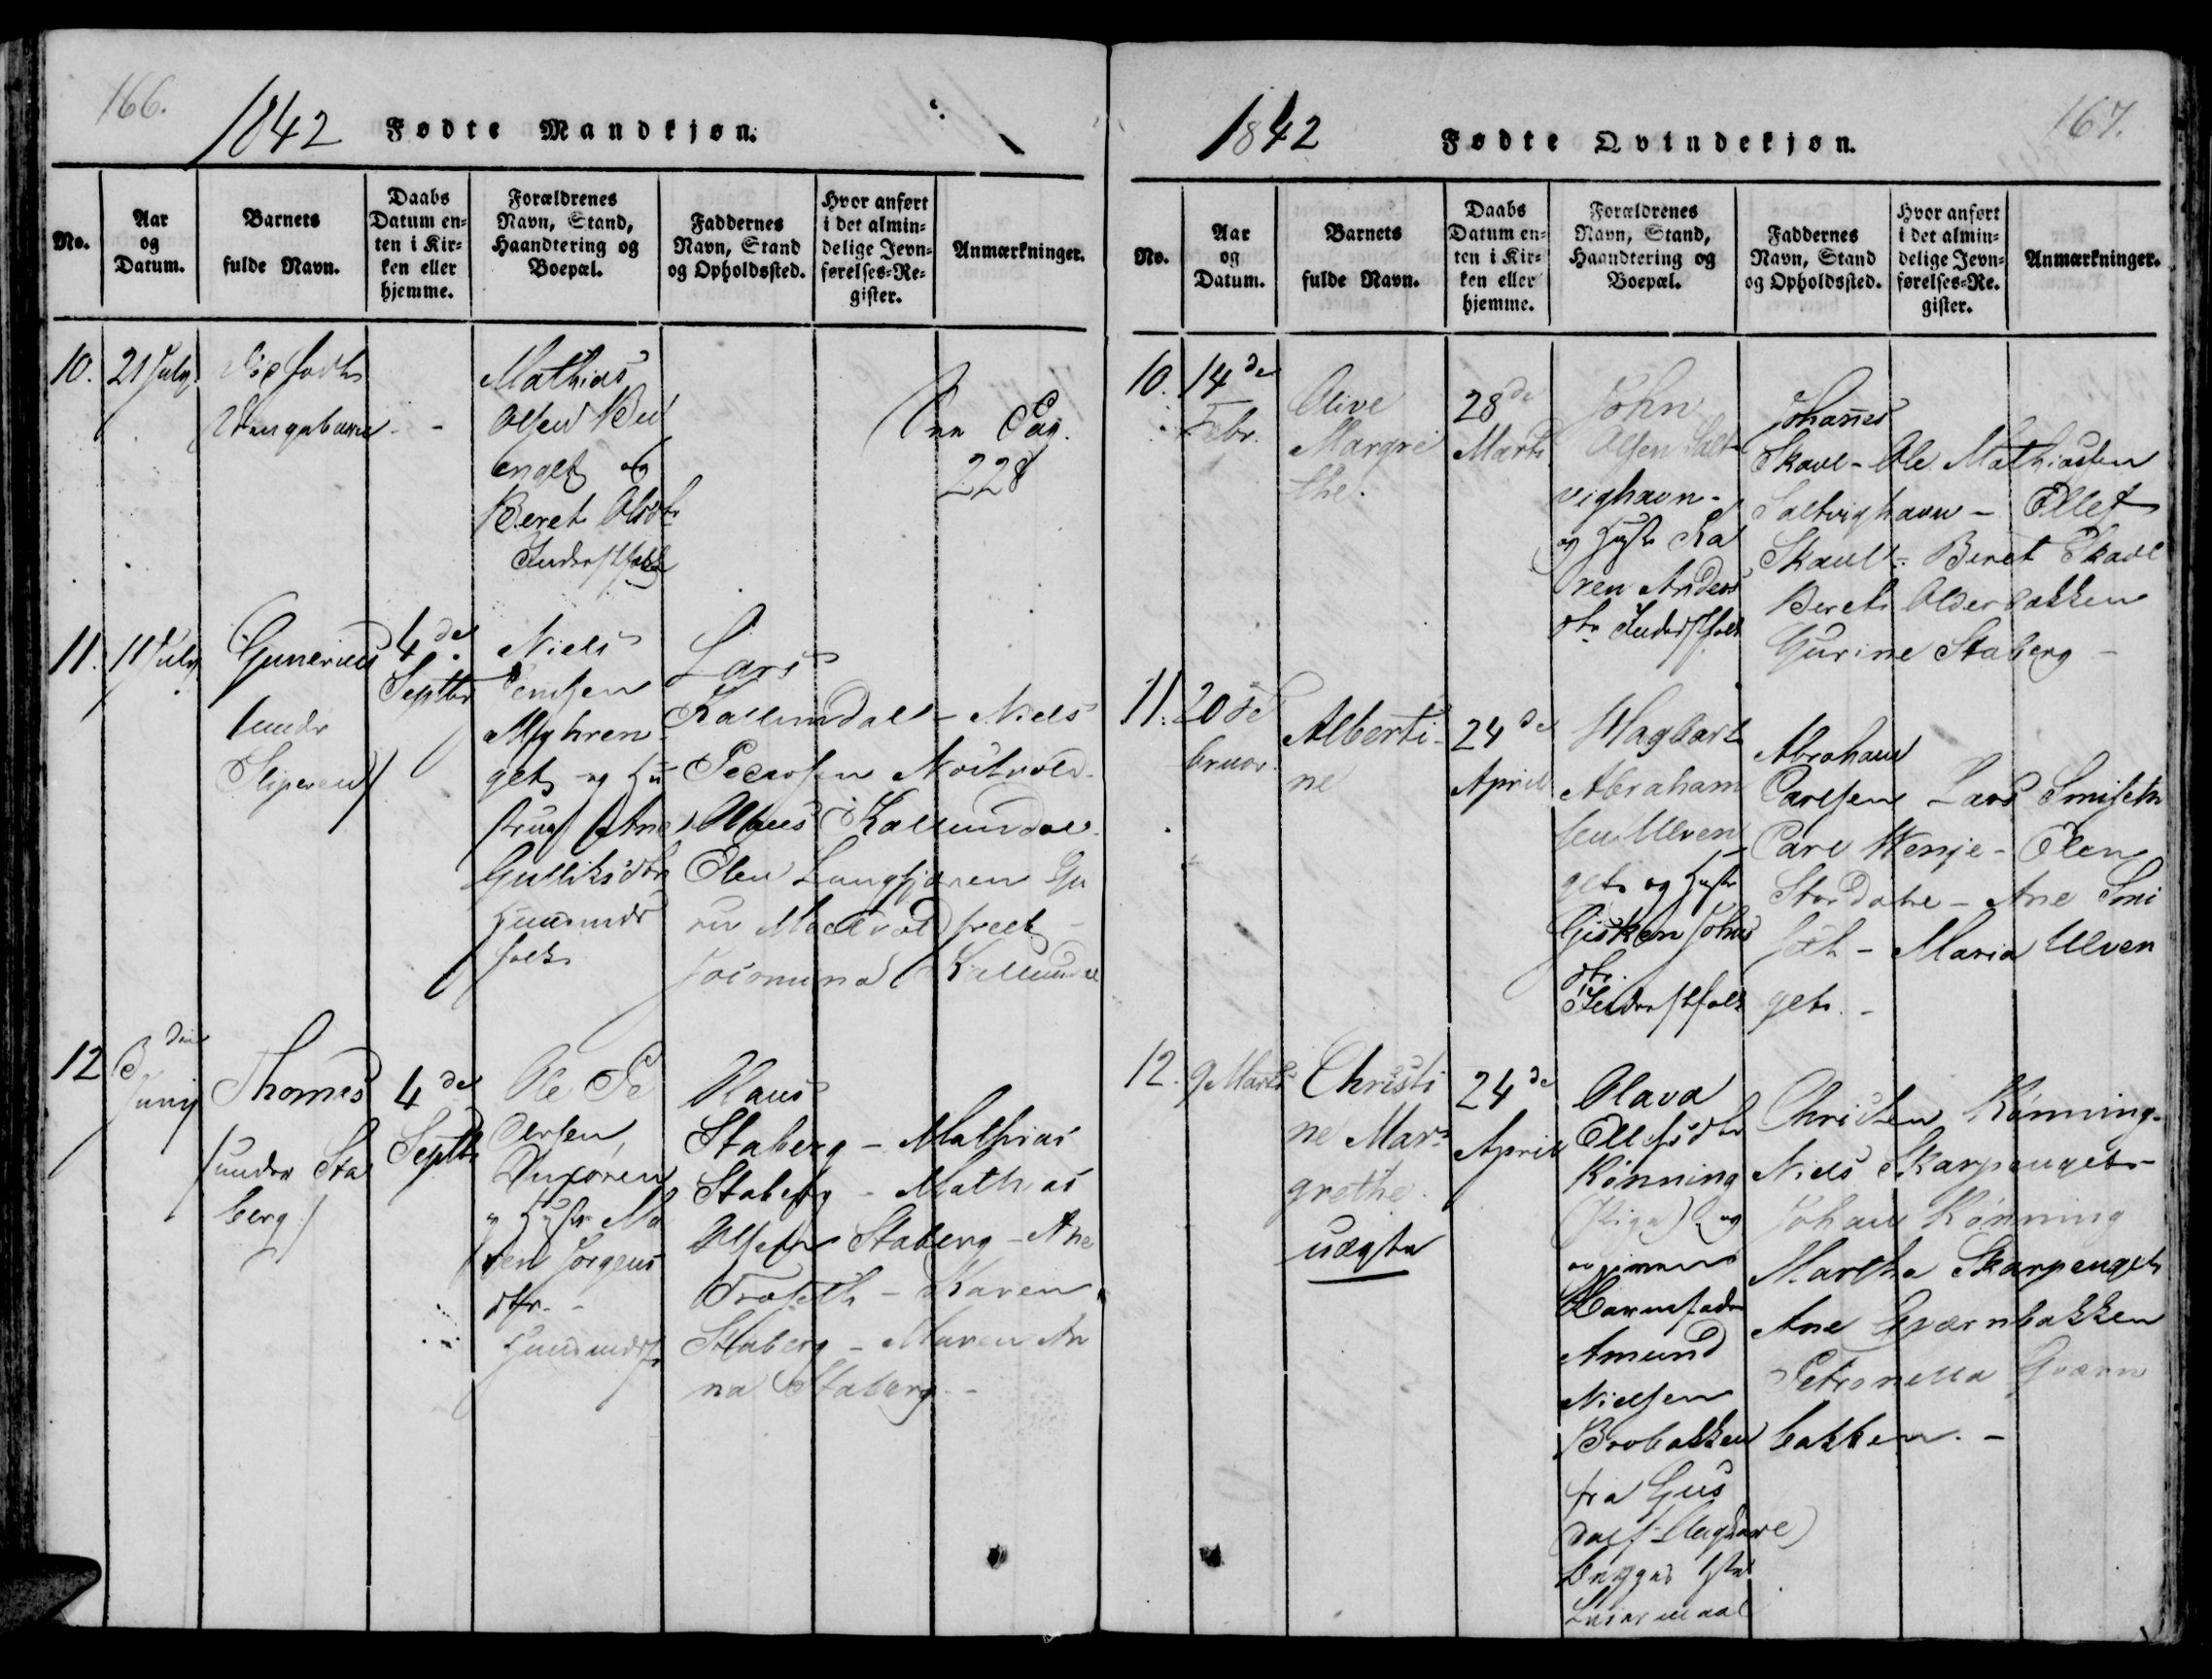 166.
1842 Fødte Mandkjøn.
No.
Aar
og
Datum.
Barnets
fulde Navn.
Daabs
Datum en-
ten i Kir-
ken eller
hjemme.
Forældrenes
Navn, Stand,
Haandtering og
Boepæl.
Faddernes
Navn, Stand
og Opholdssted.
Hvor anført
i det almin-
delige Jevn-
førelses-Re-
gister.
Anmærkninger.
10. 21 July
Mathias
Olsen
enget og
Beret Olsdtr
Inderstfolk
Pag.
228
11. 11 July
Gunerius
under
4de
Septbr
Niels
get og Hu
struе Ane
Gulliksdtr
Huusmds
folk
Lars
Kallundal - Niels
Pederssen
Olaus Kallundal
Elen
12 3die
Juny
Thomas
/under Sta
berg/
4de
Septbr
Ole Pe
dersen
og Hustr Ma
ren Jørgens
dtr. -
Huusmdsf
Olaus
Staberg - Mathias
Staberg - Mathias
Olsen Staberg - Ane
- Karen
Staberg - Maren An
na Staberg. -
167.
1842 Fødte Qvindekjøn.
No.
Aar
og
Datum.
Barnets
fulde Navn.
Daabs
Datum en-
ten i Kir-
ken eller
hjemme.
Forældrenes
Navn, Stand,
Haandtering og
Boepæl.
Faddernes
Navn, Stand
og Opholdssted.
Hvor anført
i det almin-
delige Jevn-
førelses-Re-
gister.
Anmærkninger.
10. 14de
Febr.
Olive
Margre
the.
28de
Marts
John
Olsen Salt-
vighavn -
og Hustr Ka
ren Anders
dtr Inderstfolk
Johanes
Skavl - Ole Mathiassen
Saltvighavn - Ellef
Skavl - Beret Skavl
Beret Olderbakken
Gurine Staberg -
11. 20 Fe
bruar.
Alberti-
ne
24de
April
Hagbart
Abraham
sen Ulven
get og Hustr
Gisken Johns
dtr.
Inderstfolk
Abraham
Carlsen Lars Smiseth
Carl Wenje - Elen
Stordahl - Ane Smi
seth - Maria Ulven
get. -
12. 9 Marts
Christi
ne Mar-
grethe.
uægte
24de
April
Olava
Ellefsdtr
Rønning
(Pige) og
Barnefader
Amund
Nielsen
Brobakken
fra Guls
dal
begges 1ste
Leiermaal
Christen Rønning -
Niels Skarpenget -
Johan Rønning
Martha Skarpenget
Ane Qværnbakken
Petronella Qværn
bakken. -